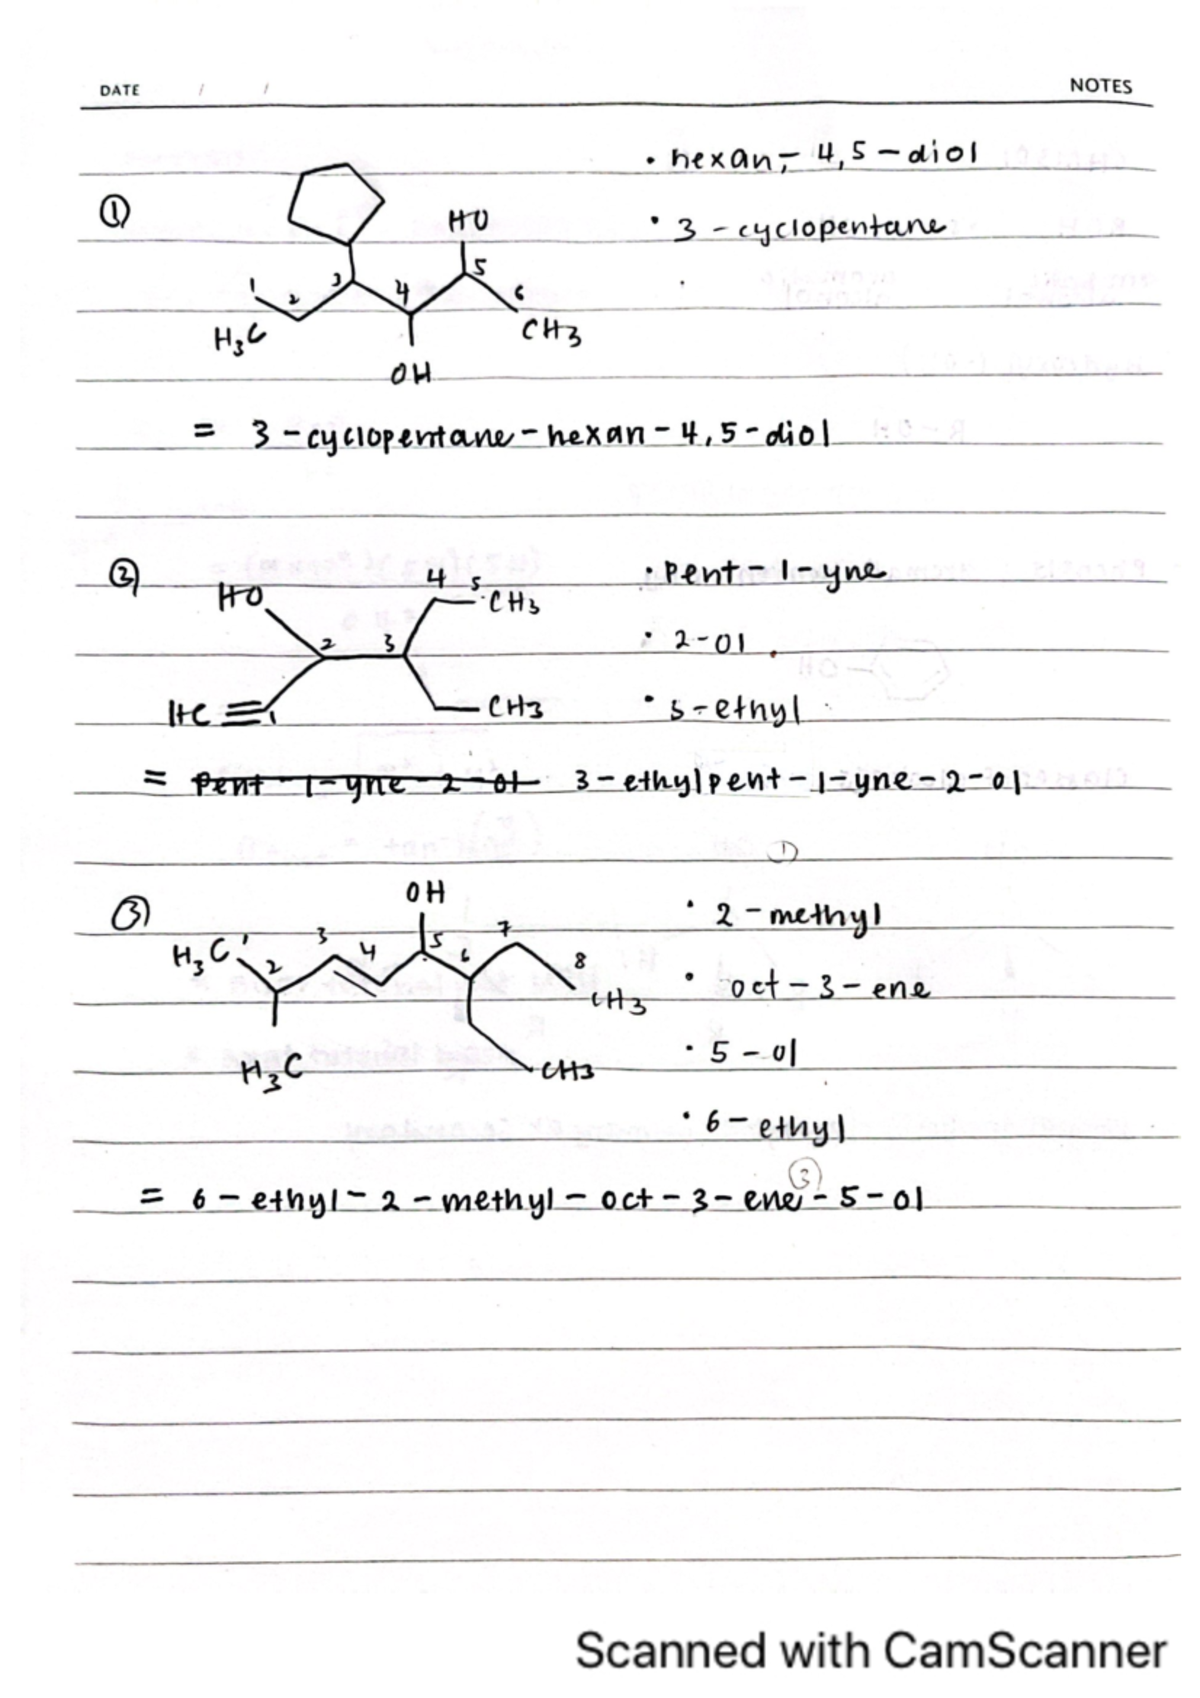 DATE / / NOTES
① HO
H₃C 1 2 3 4 5 6 CH3
OH
• hexan,- 4,5 - diol
• 3 - cyclopentane
= 3 - cyclopentane - hexan - 4,5 - diol
② HO 4 5 CH3
2 3
HC 1 CH3
• pent - 1 - yne
• 2 - ol
= pent - 1 - yne - 2 - ol 3 - ethylpent - 1 - yne - 2 - ol
①
③ OH
H₃C 1 2 3 4 5 6 7 8 CH3
H₃C CH3
• 2 - methyl
• oct - 3 - ene
• 5 - ol
• 6 - ethyl
③
= 6 - ethyl - 2 - methyl - oct - 3 - ene - 5 - ol
Scanned with CamScanner